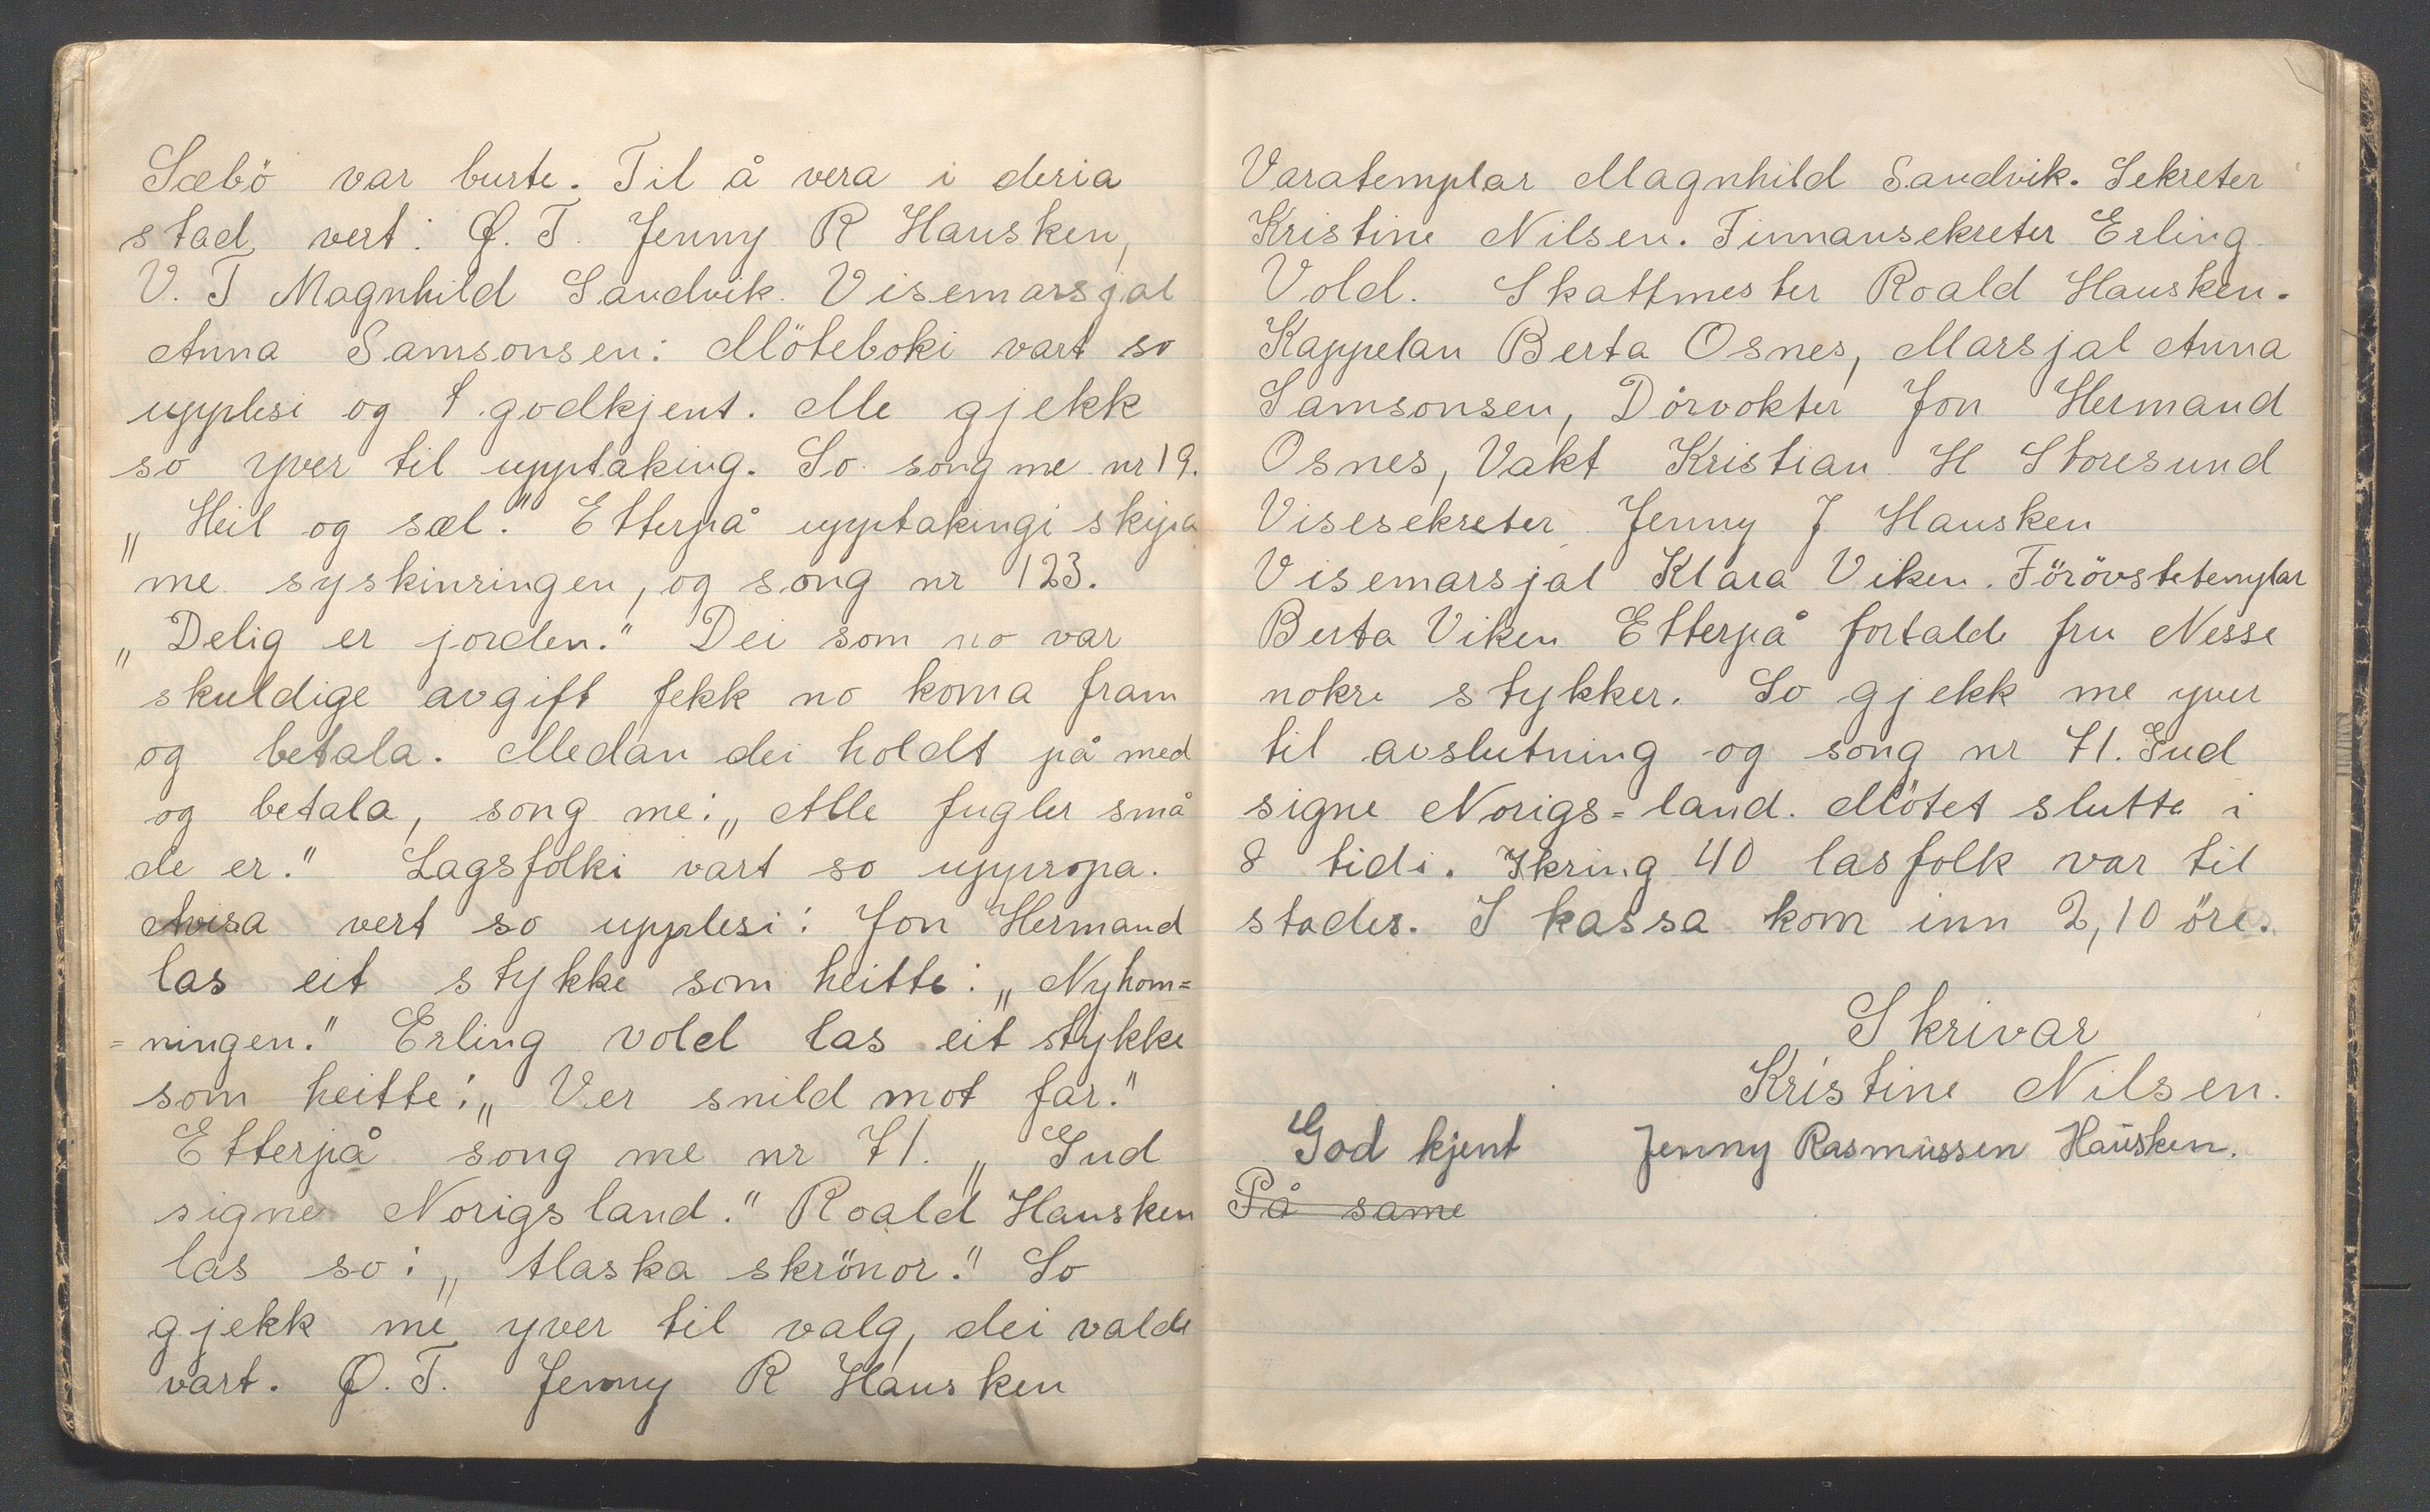 Sæbö var burte. Til å vera i deria
stad vert: Ø. T. Jenny R Hausken,
V. T Magnhild Sandvik. Visemarsjal
Anna Samsonsen: Möteboki vart so
upplesi og godkjent. Me gjekk
so yver til upptaking. So song me nr 19.
„Heil og sæl." Etterpå upptakingi skipa
me syskinringen, og song nr 123.
„Delig er jorden." Dei som no var
skuldige avgift fekk no koma fram
og betala. Medan dei holdt på med
og betala, song me: „Alle fugler små
de er." Lagsfolki vart so uppropa.
Avisa vert so upplesi: Jon Hermand
las eit stykke som heitte: „Nyhom=
=ningen." Erling vold las eit stykke
som heitte: „Ver snild mot far."
Etterpå song me nr 71. „Gud
signe Norigs land." Roald Hausken
las so: „Alaska skrönor." So
gjekk me yver til valg, dei valde
vart. Ø. T. Jenny R Hausken
Varatemplar Magnhild Sandvik. Sekreter
Kristine Nilsen. Finnansekreter Erling
Vold. Skattmester Roald Hausken.
Kappelan Berta Osnes, Marsjal Anna
Samsonsen, Dörvokter Jon Hermand
Osnes, Vakt Kristian H Storesund
Visesekreter Jenny J Hausken
Visemarsjal Klara Viken. Förövstetemplar
Berta Viken Etterpå fortalde fru Nesse
nokre stykker. So gjekk me yver
til avslutning og song nr 71. Gud
signe Norigs=land. Mötet slutte i
8 tidi. Ikring 40 lasfolk var til
stades. I kassa kom inn 2,10 öre.
Skrivar
Kristine Nilsen.
God kjent Jenny Rasmussen Hausken.
På same